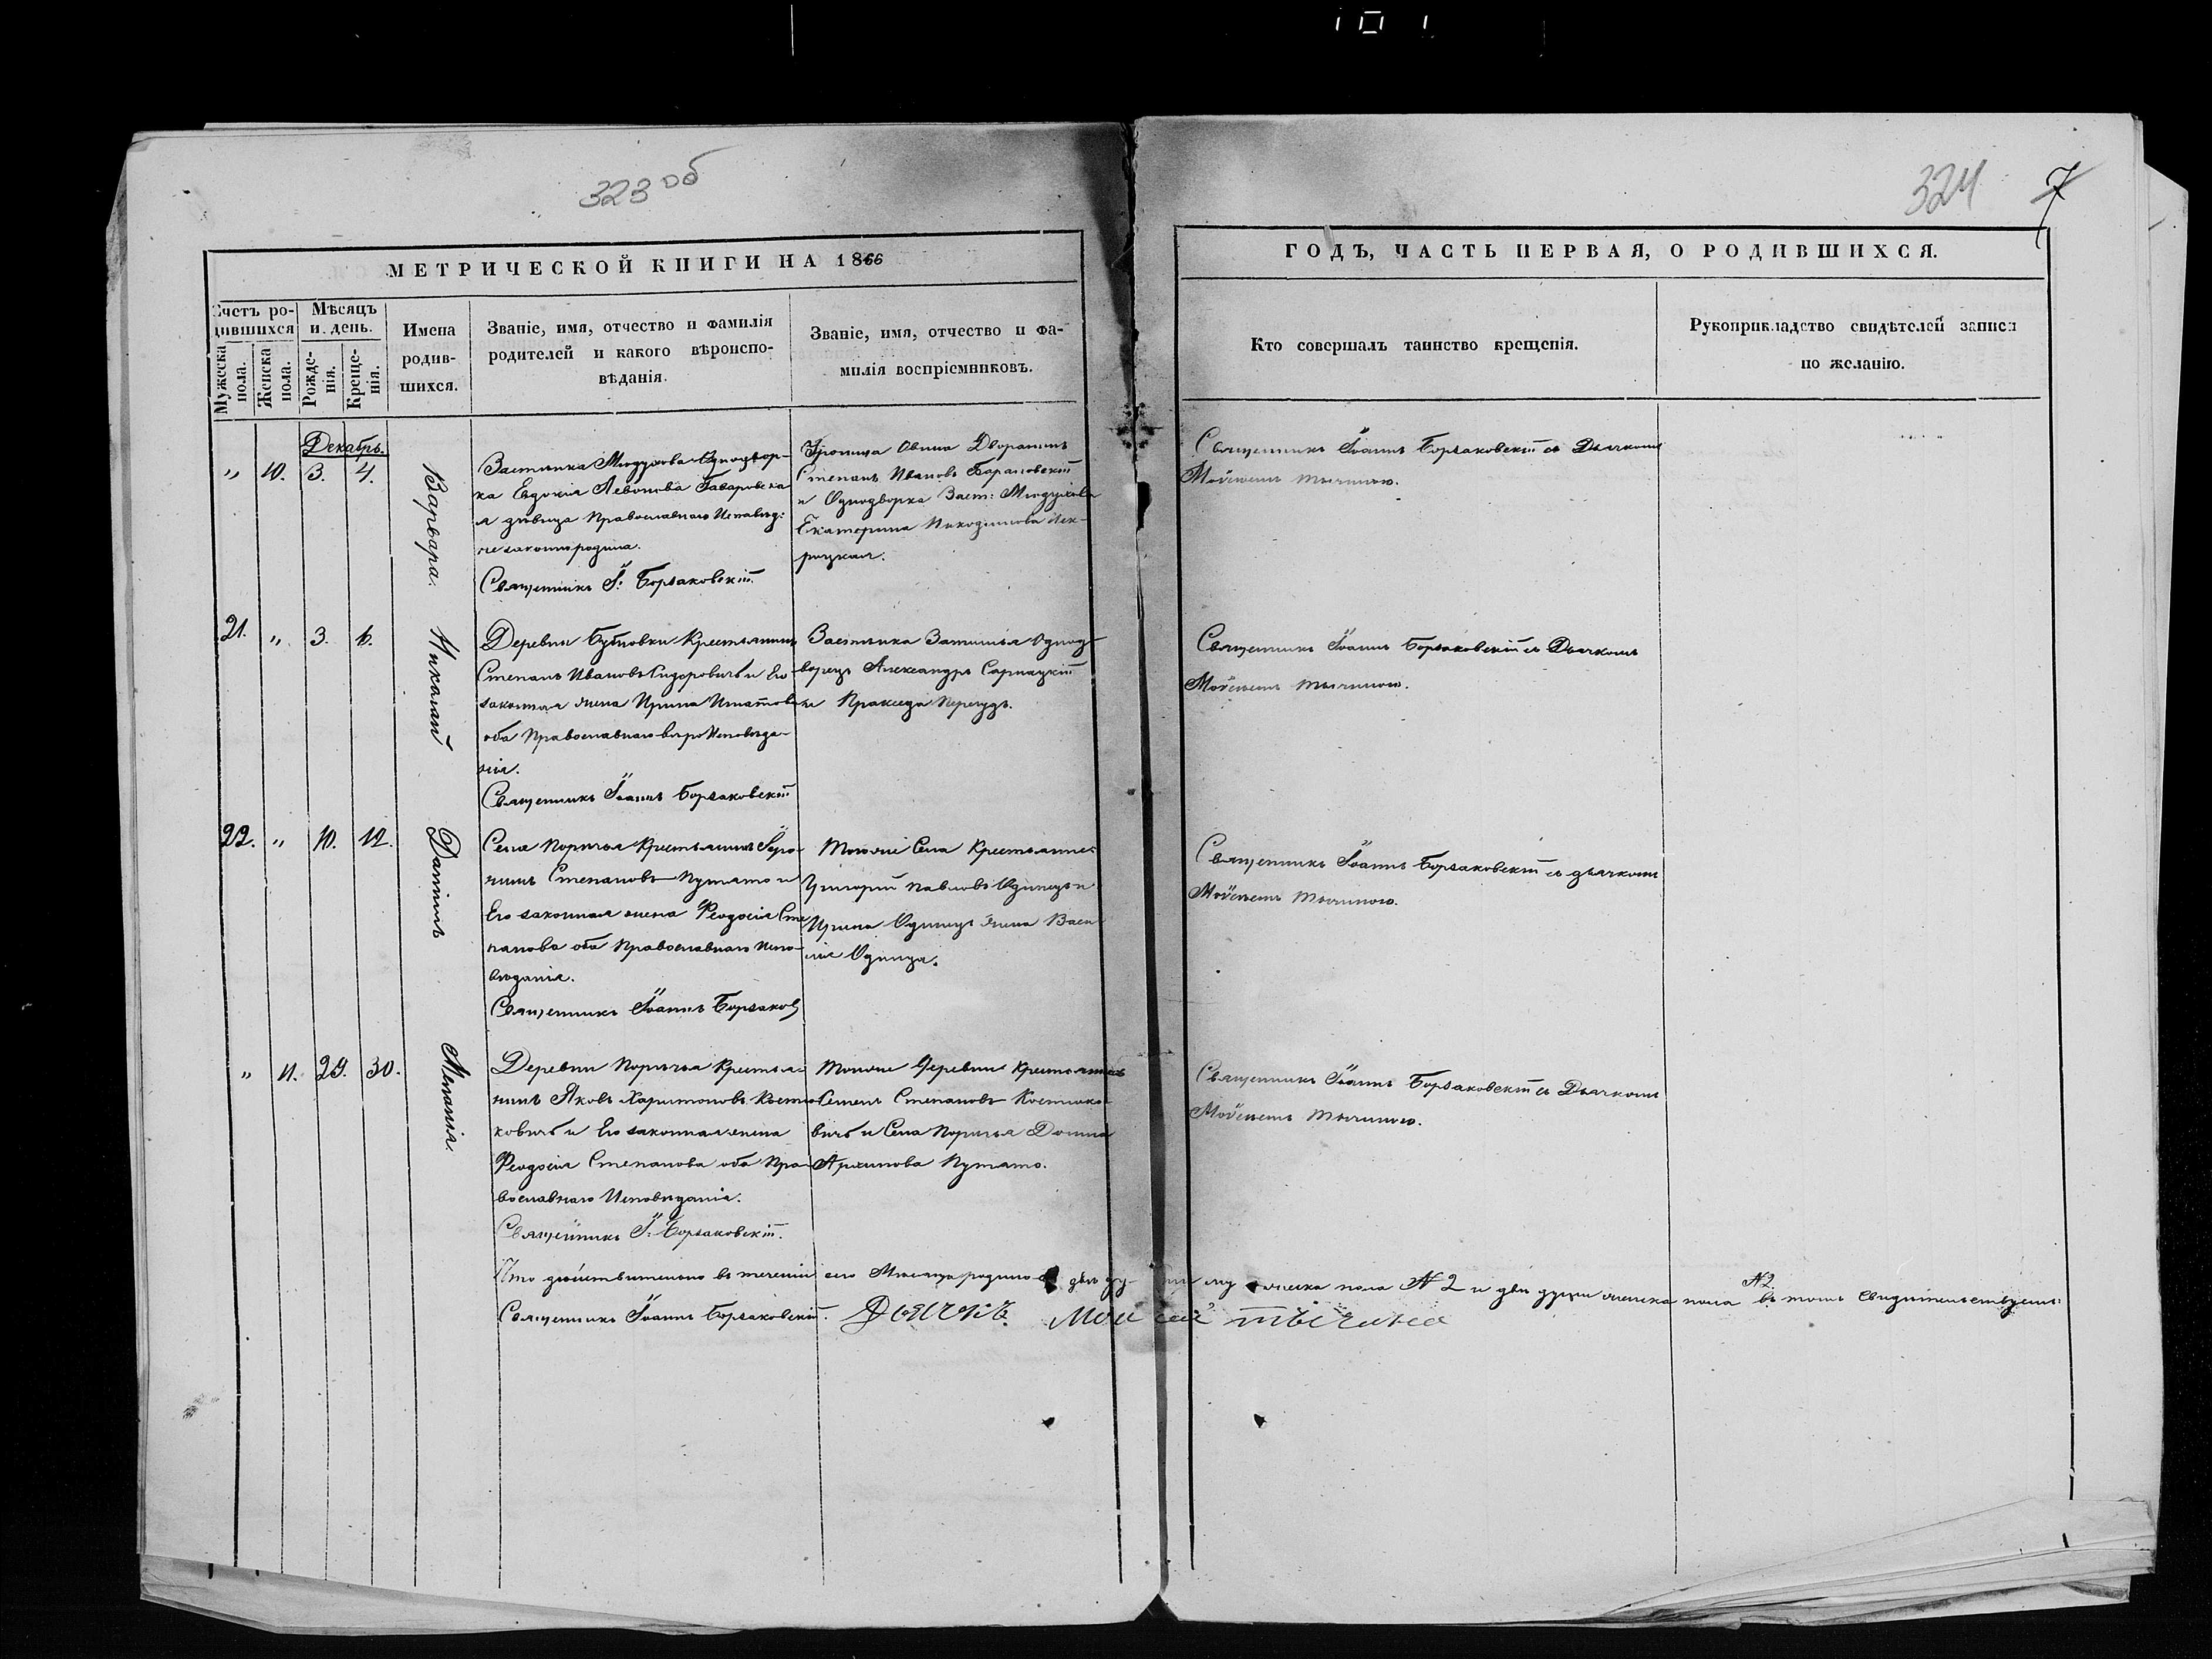 323 об
324 7
МЕТРИЧЕСКОЙ КНИГИ НА 1866
ГОДЪ, ЧАСТЬ ПЕРВАЯ, О РОДИВШИХСЯ.
Счетъ родившихся
Мужеска пола.
Женска пола.
Мѣсяцъ и день.
Рожденія.
Крещенія.
Имена родившихся.
Званіе, имя, отчество и фамилія
родителей и какого вѣроиспо-
вѣданія.
Званіе, имя, отчество и фа-
милія воспріемниковъ.
Кто совершалъ таинство крещенія.
Рукоприкладство свидѣтелей записи
по желанію.
Декабрь.
" 10. 3. 4.
Варвара.
Застѣнка Мюдухова Однодвор-
ка Евдокія Левонова
я дѣвица Православнаго Исповѣд:
незаконнорожденна.
Священникъ І: Борзаковскій
Дворянинъ
Степанъ Ивановъ Барановскій
и Однодворка Заст: Мюдухова
Екатерина Никодимова
Священникъ Іоаннъ Борзаковскій съ Дьячкомъ
Мойсеемъ Тычиною.
21. " 3. 6.
Николай
Деревни Бутовки Крестьянинъ
Степанъ Ивановъ Сидоровичъ и Его
законная жена Ирина Игнатова
оба Православнаго вѣроИсповѣда-
нія.
Священникъ Іоаннъ Борзаковскій
Застѣнка Затишья Однод-
ворецъ Александръ Сарнацкій
и Пракседа
Священникъ Іоаннъ Борзаковскій съ Дьячкомъ
Мойсеемъ Тычиною.
22. " 10. 12.
Даніилъ
Села Порѣчья Крестьянинъ Іеро-
нимъ Степановъ Путято и
Его законная жена Феодосія Сте
панова оба Православнаго Испо-
вѣданія.
Священникъ Іоаннъ Борзаков
Тогоже Села Крестьяне:
Григорій Павловъ Одинецъ и
Ирина Одинецъ жена Васи
лія Одинца.
Священникъ Іоаннъ Борзаковскій съ дьячкомъ
Мойсеемъ Тычиною.
" 11. 29. 30.
Меланія.
Деревни Порѣчья Крестья-
нинъ Яковъ Харитоновъ Костю-
ковичъ и Его законная жена
Феодосія Степанова оба Пра-
вославнаго Исповѣданія.
Священникъ І: Борзаковскій.
Тойже Деревни Крестьянинъ
Семенъ Степановъ Костюко-
вичъ и Села Порѣчья Домна
Архипова Путято.
Священникъ Іоаннъ Борзаковскій съ Дьячкомъ
Мойсеемъ Тычиною.
Что дѣйствительно въ теченіи сего Мѣсяца родилось двѣ ду- ши му жеска пола № 2 и двѣ души женска пола № 2. въ томъ Свидѣтельствуемъ:
Священникъ Іоаннъ Борзаковскій. Дьячокъ Мойсей Тычина